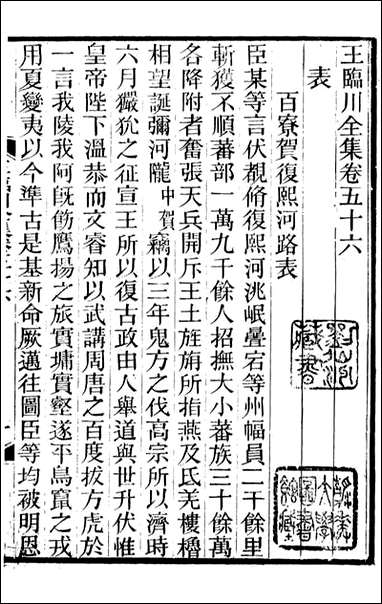 王臨川全集卷五十六
表
百寮賀復熙河路表
臣某等言伏覩修復熙河洮岷疊宕等州幅員二千餘里
斬獲不順蕃部一萬九千餘人招撫大小蕃族三十餘萬
各降附者奮張天兵開斥王土旌旃所指燕及氐羌樓櫓
相望誕彌河隴中賀竊以三年鬼方之伐高宗所以濟時
六月玁狁之征宣王所以復古政由人舉道與世升伏惟
皇帝陛下溫恭而文睿知以武講周唐之百度拔方虎於
一言我陵我阿既飭鷹揚之旅實墉實壑遂平鳥竄之戎
用夏變夷以今準古是基新命厥邁往圖臣等均被明恩